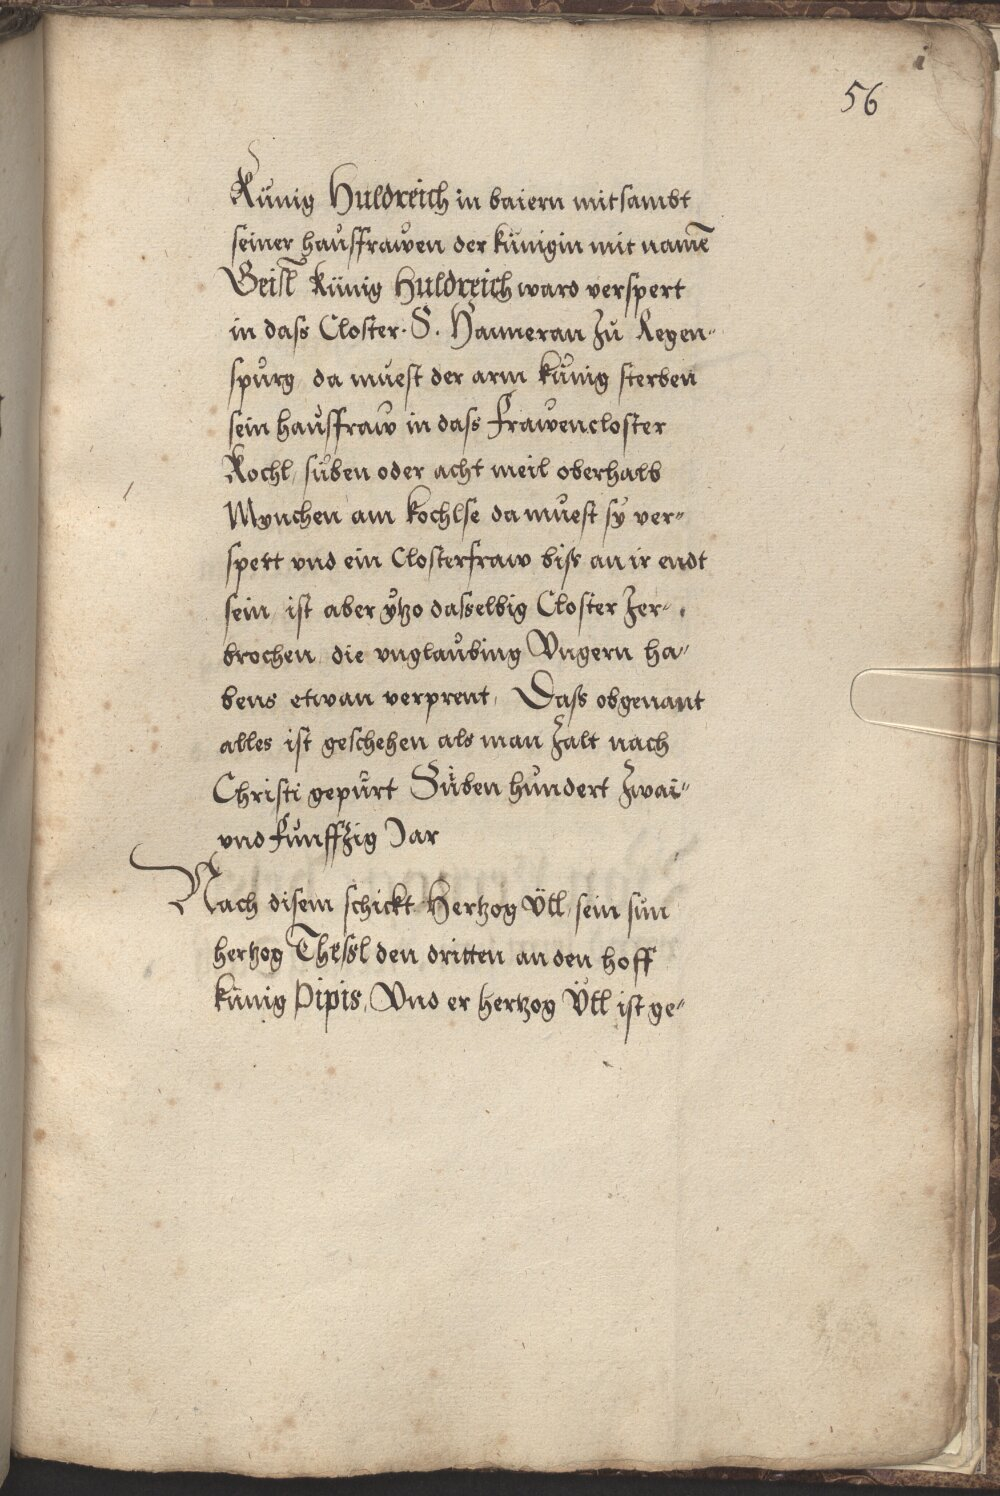 i
56
Künig Huldreich in baiern mitsambt
seiner hausfrawen der künigin mit namē
Geisl Künig Huldreich ward verspert
in dass Closter. S. Haimeran zu Regen-
spurg, da muest der arm künig sterben
sein hausfraw in dass Frawencloster
Kochl, süben oder acht meil oberhalb
Mynchen am Kochlse da muest sy ver-
spert vnd ein Closterfraw biss an ir endt
sein, ist aber ytzo dasselbig Closter zer-
brochen, die vnglaubing Vngern ha-
bens etwan verprent, Dass obgenant
alles ist geschehen als man zalt nach
Christi gepürt Süben hundert zwai-
vnd funffzig Jar
Nach disem schickt Hertzog Ütl, sein sun
hertzog Thessl den dritten an den hoff
künig Pipis, Vnd er hertzog Ütl ist ge-